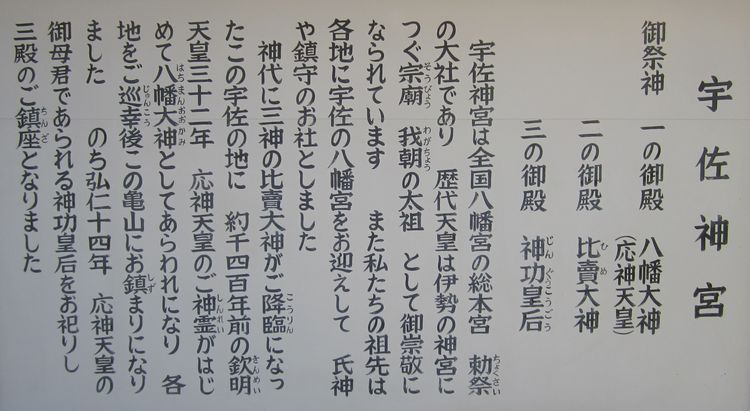 宇佐神宮
御祭神 一の御殿 八幡大神
(応神天皇)
二の御殿 比賣大神
三の御殿 神功皇后
宇佐神宮は全国八幡宮の総本宮 勅祭
の大社であり 歴代天皇は伊勢の神宮に
つぐ宗廟 我朝の太祖 として御崇敬に
なられています また私たちの祖先は
各地に宇佐の八幡宮をお迎えして 氏神
や鎮守のお社としました
神代に三神の比賣大神がご降臨になっ
たこの宇佐の地に 約千四百年前の欽明
天皇三十二年 応神天皇のご神霊がはじ
めて八幡大神としてあらわれになり 各
地をご巡幸後この亀山にお鎮まりになり
ました のち弘仁十四年 応神天皇の
御母君であられる神功皇后をお祀りし
三殿のご鎮座となりました